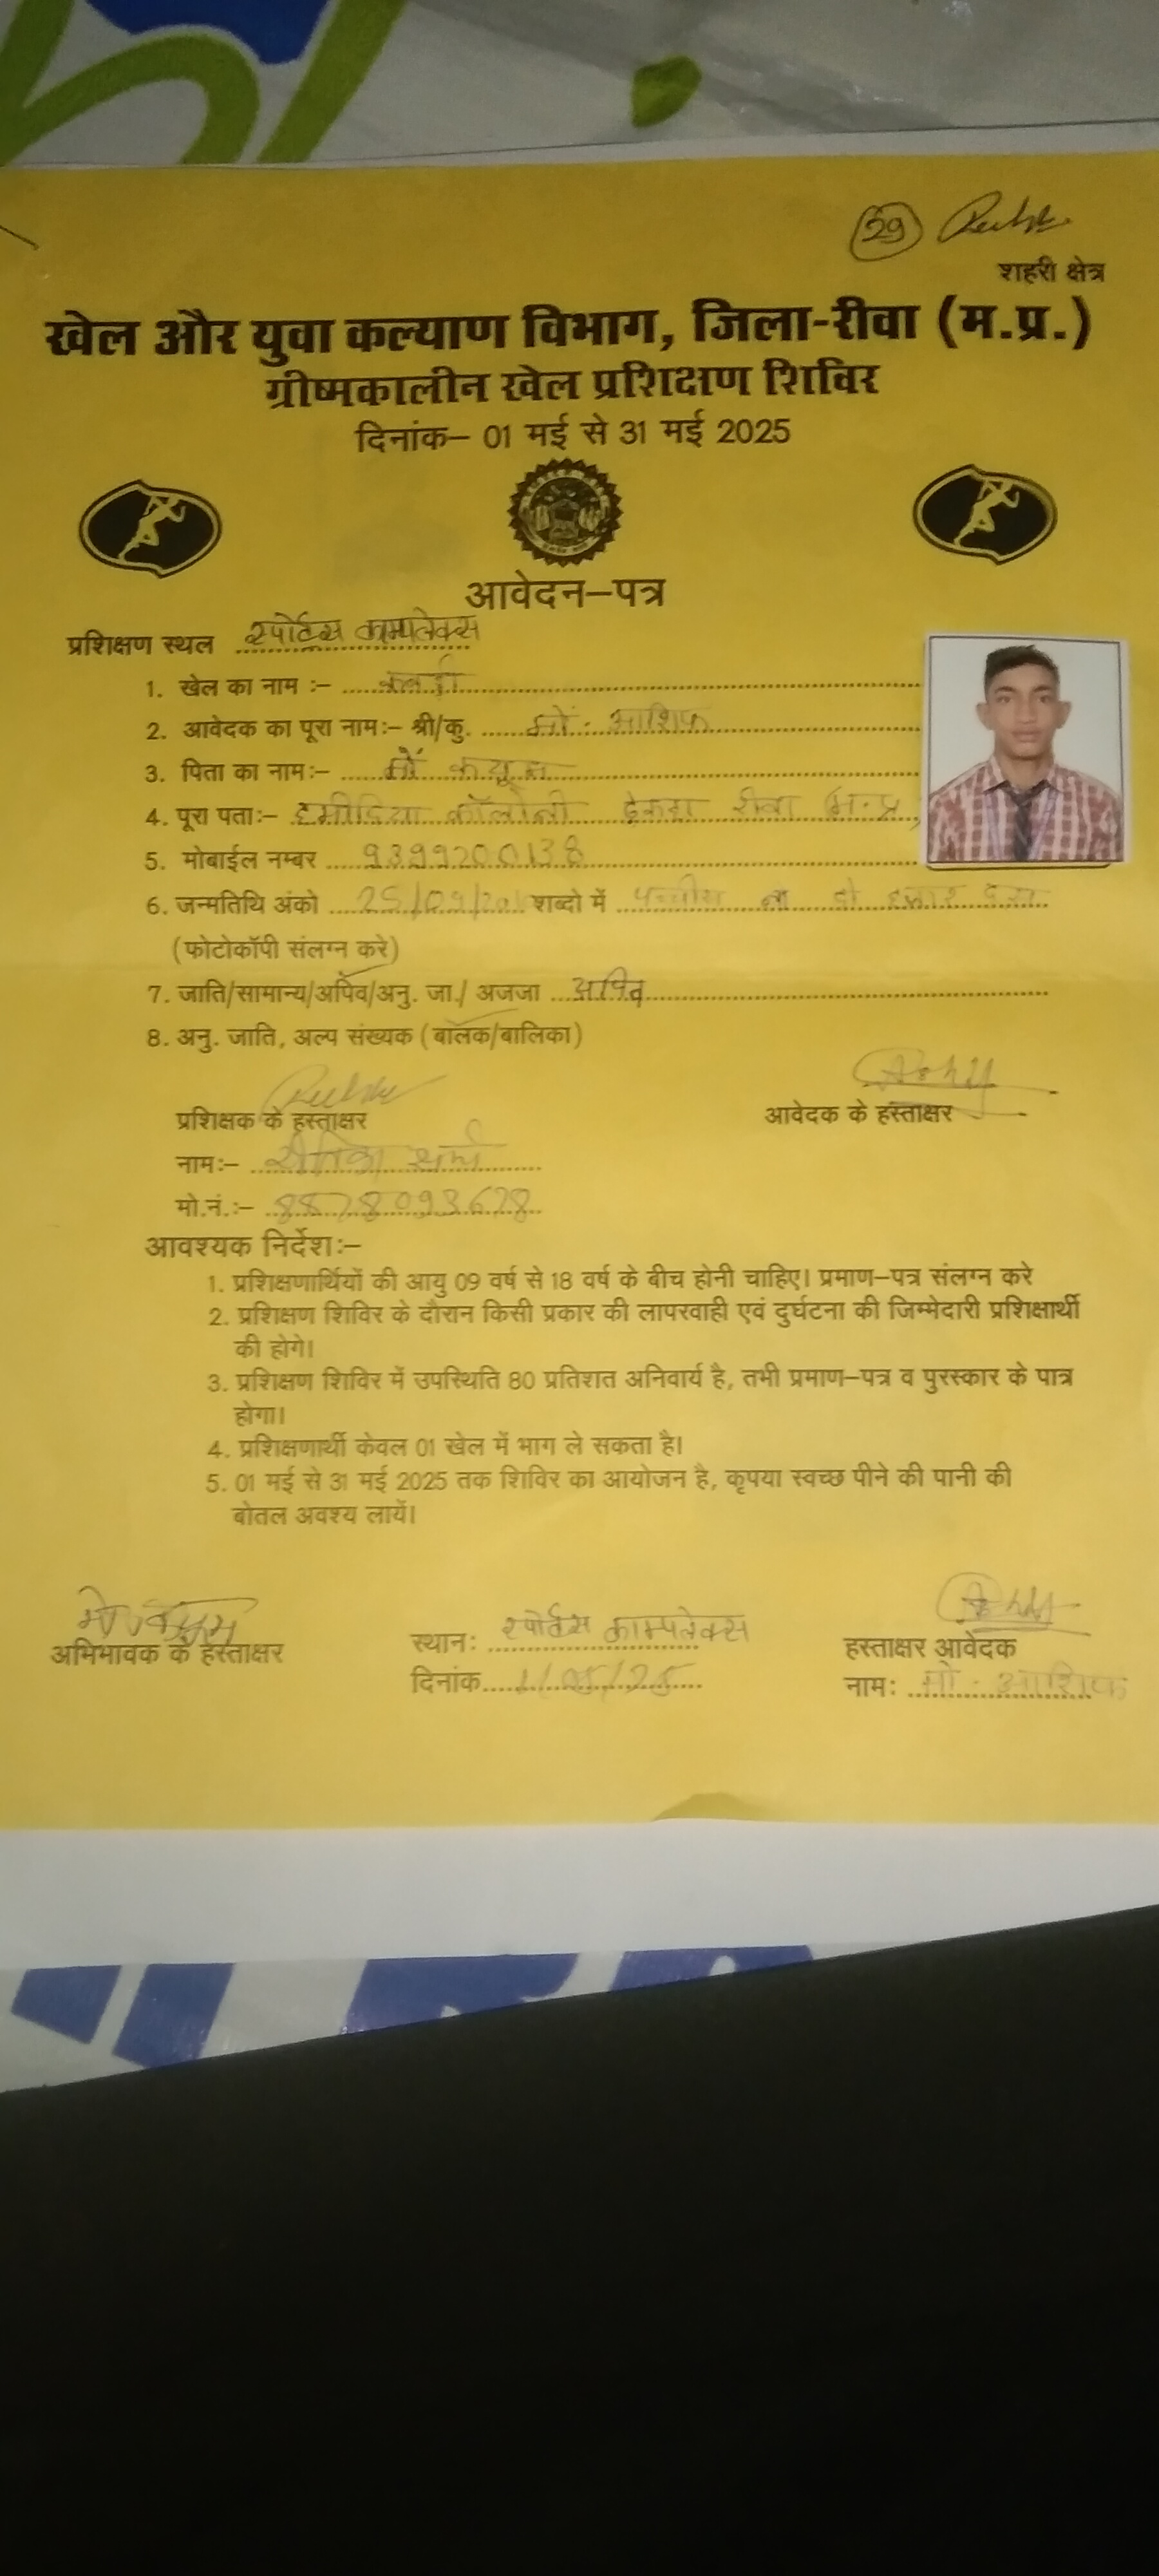 29
शहरी क्षेत्र
खेल और युवा कल्याण विभाग, जिला-रीवा (म.प्र.)
ग्रीष्मकालीन खेल प्रशिक्षण शिविर
दिनांक– 01 मई से 31 मई 2025
आवेदन–पत्र
प्रशिक्षण स्थल स्पोर्टस काम्पलेक्स
1. खेल का नाम :–
2. आवेदक का पूरा नाम:– श्री/कु. मो. आशिफ
3. पिता का नाम:– मो
4. पूरा पता:– हमीदिया कॉलोनी रीवा म.प्र,
5. मोबाईल नम्बर 9399200138
6. जन्मतिथि अंको शब्दो में पच्चीस नौ दो हजार दस
(फोटोकॉपी संलग्न करे)
7. जाति/सामान्य/अपिव/अनु. जा./ अजजा अपिव
8. अनु. जाति, अल्प संख्यक (बालक/बालिका)
प्रशिक्षक के हस्ताक्षर
आवेदक के हस्ताक्षर
नाम:–
मो.नं.:– 8878093678
आवश्यक निर्देश:–
1. प्रशिक्षणार्थियों की आयु 09 वर्ष से 18 वर्ष के बीच होनी चाहिए। प्रमाण–पत्र संलग्न करे
2. प्रशिक्षण शिविर के दौरान किसी प्रकार की लापरवाही एवं दुर्घटना की जिम्मेदारी प्रशिक्षार्थी
की होगे।
3. प्रशिक्षण शिविर में उपस्थिति 80 प्रतिशत अनिवार्य है, तभी प्रमाण–पत्र व पुरस्कार के पात्र
होगा।
4. प्रशिक्षणार्थी केवल 01 खेल में भाग ले सकता है।
5. 01 मई से 31 मई 2025 तक शिविर का आयोजन है, कृपया स्वच्छ पीने की पानी की
बोतल अवश्य लायें।
अभिभावक के हस्ताक्षर
स्थान: स्पोर्टस काम्पलेक्स
हस्ताक्षर आवेदक
दिनांक 1/05/25
नाम: मो. आशिफ